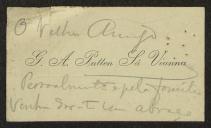 O Velho Amigo
G. A. Patten Sá Vianna
Pessoalmente e pela familia
um abraço